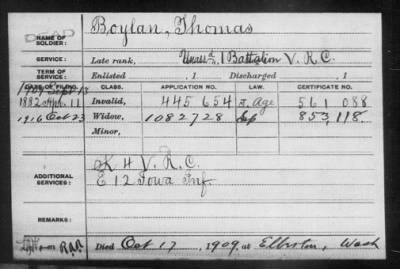 DEAD
NAME OF SOLDIER: Boylan, Thomas
SERVICE: Late rank, Unass'd, 1 Battalion V. R. C.
TERM OF SERVICE: Enlisted , 1 Discharged , 1
DATE OF FILING. CLASS. APPLICATION NO. LAW. CERTIFICATE NO.
1882 Invalid, 445 654 Age 561 088
1916 Oct 23 Widow, 1082728 853,118
Minor,
ADDITIONAL SERVICES: K 4 V. R. C.
E 12 Iowa Inf.
REMARKS:
Died Oct 17, 1909, at , Wash